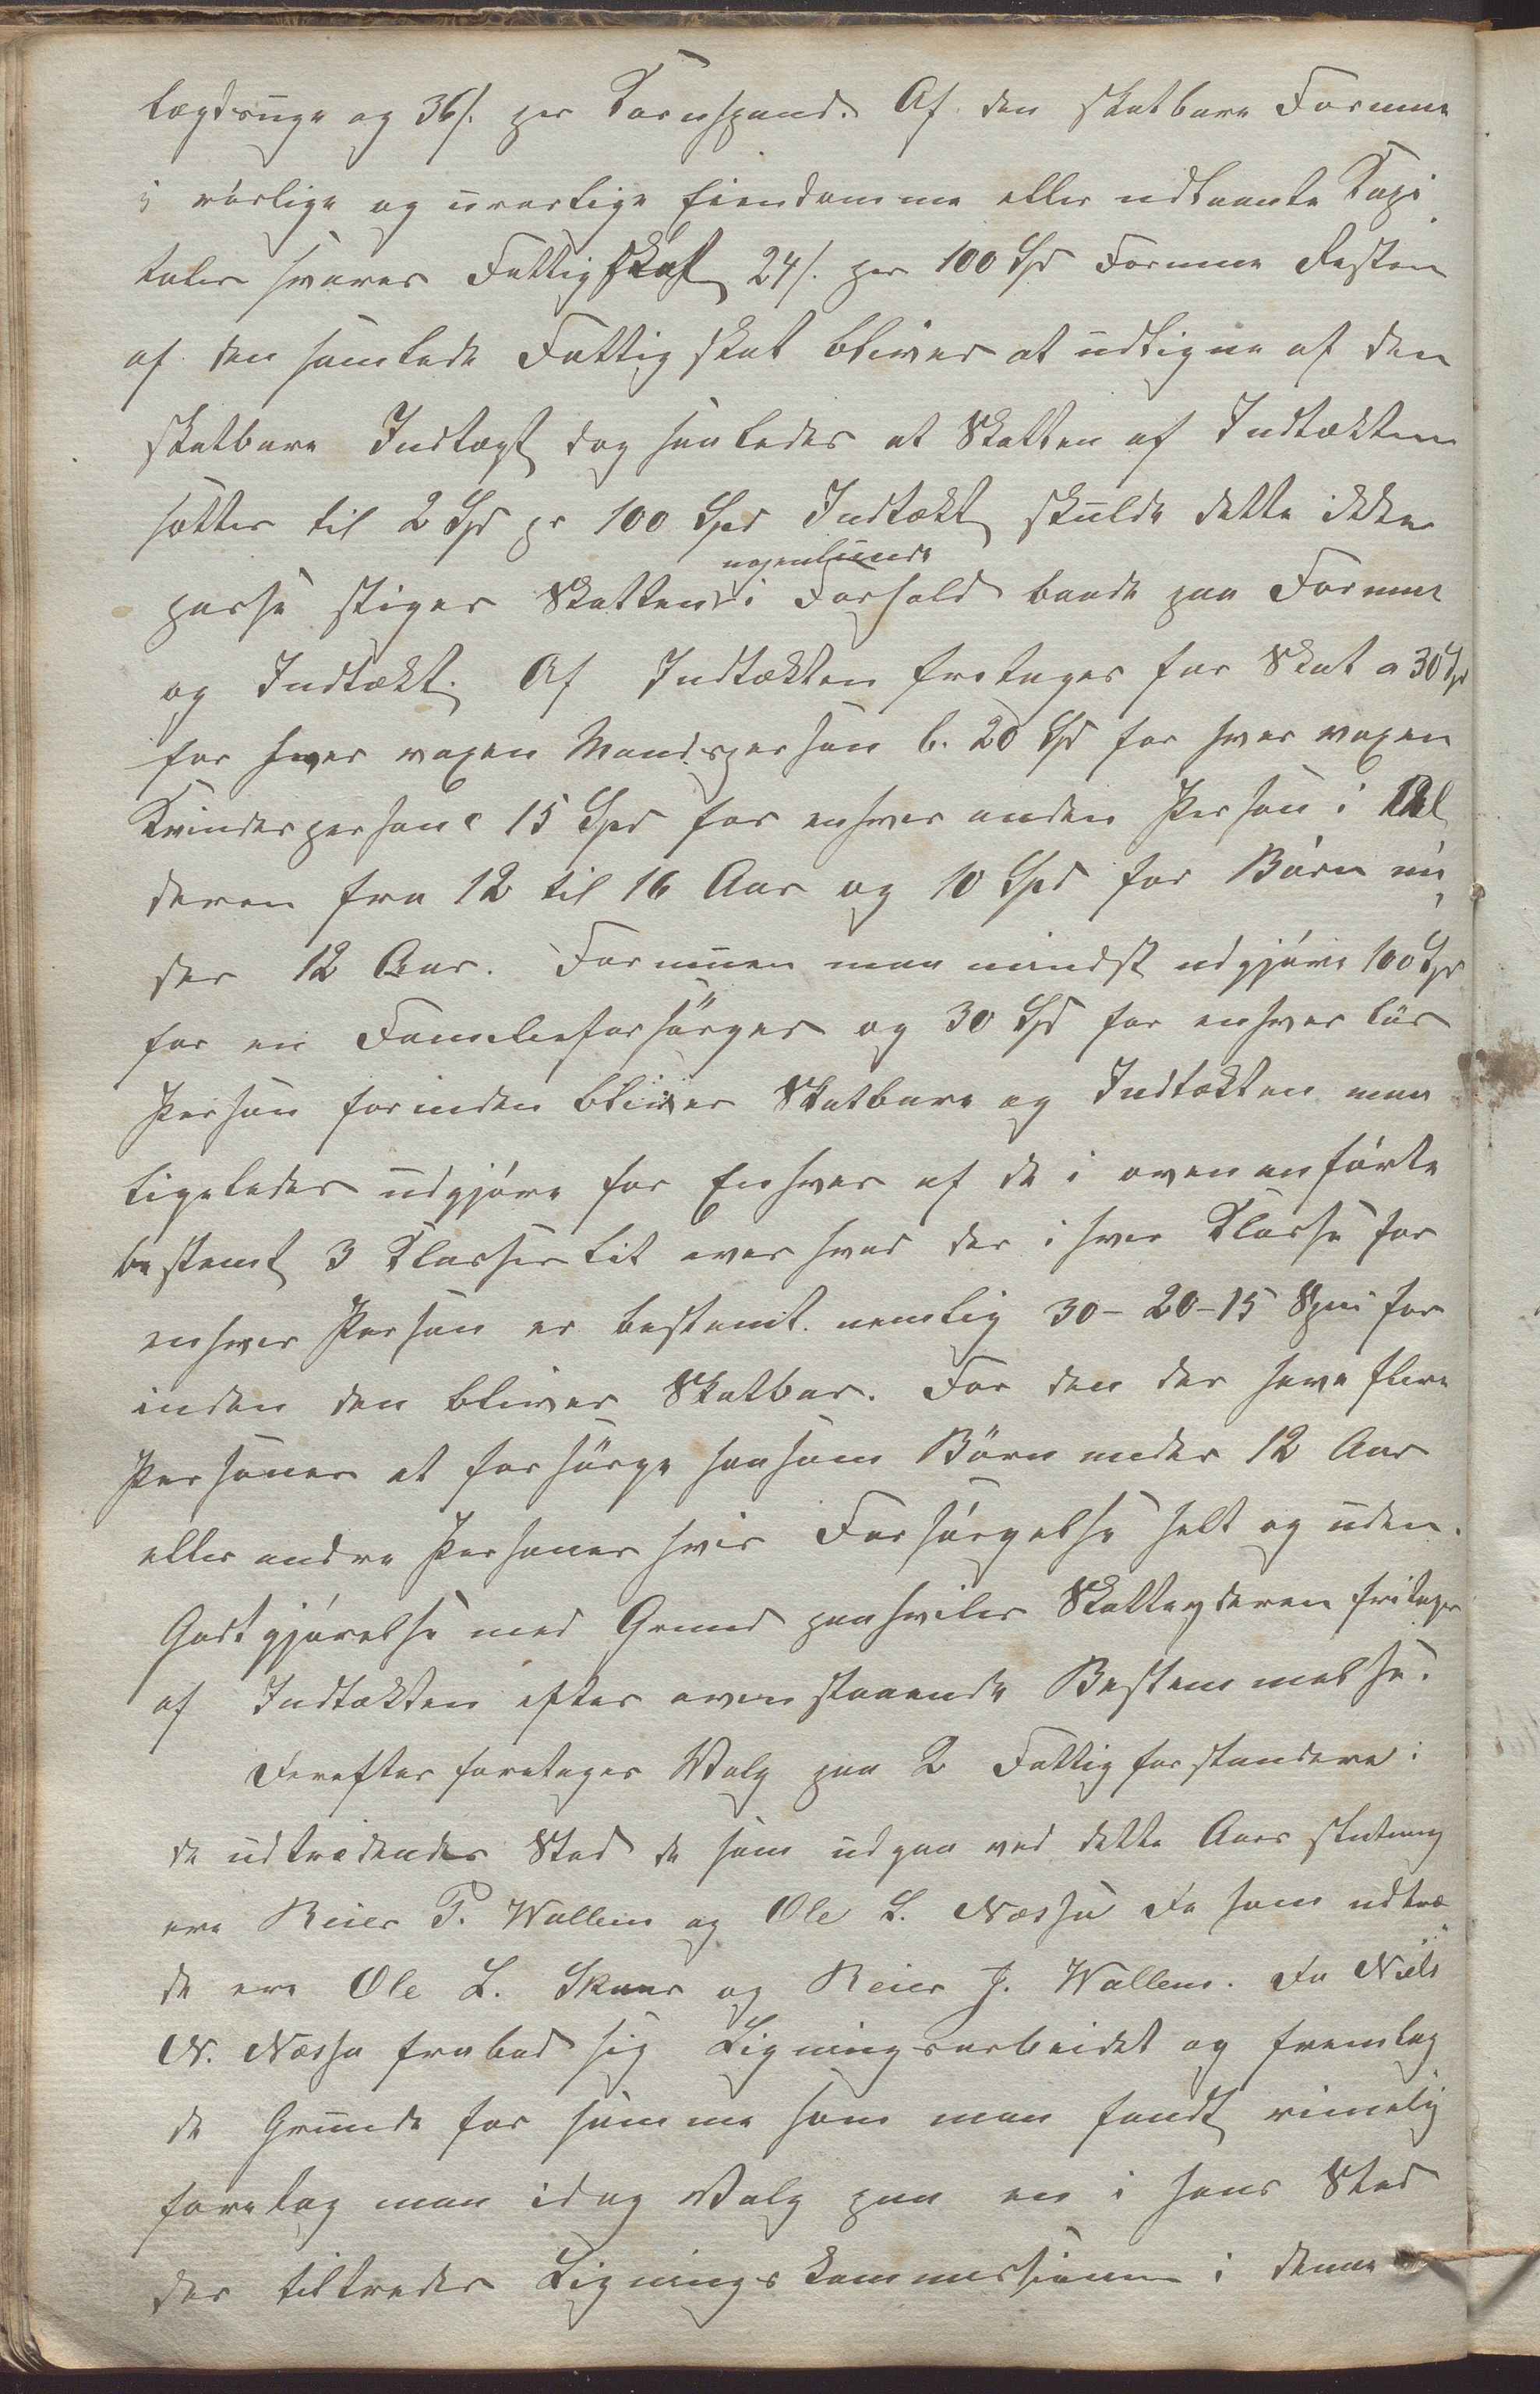 lægdsuge og 36/. per Kornspand. Af den skatbare Formue
i rörlige og urörlige Eiendomme eller udlaante Kapi
taler svares Fattigskat 24/. per 100 Spd Formue Resten
af den samlede Fattigskat bliver at udligne af den
skatbare Indtægt dog saaledes at Skatten af Indtækten
sættes til 2 Spd pr 100 Spd Indtækt skulde dette ikke
nogenlunde
passe stiger Skatten i Forhold baade paa Formue
og Indtækt. Af Indtækten fretages for Skat a 30 Spd
for hver voxen Mandsperson b. 20 Spd for hver voxen
Kvindesperson c 15 Spd for enhver anden Person i Al
deren fra 12 til 16 Aar og 10 Spd for Börn un
der 12 Aar. Formuen maa mindst udgjöre 100 Spd
for en Familieforsörger og 30 Spd for enhver lös
Person forinden bliver Skatbare og Indtækten maa
ligeledes udgjöre for Enhver af de i ovenanförte
bestemt 3 Klasser lit over hvad der i hver Klasse for
enhver Person er bestemt. nemlig 30 - 20 - 15 Spd for
inden den bliver Skatbar. For den der have flere
Personer at forsörge saasom Börn under 12 Aar
eller andre Personer hvis Forsörgelse helt og uden
Godtgjörelse med Grund paahviler Skatteyderen fritages
af Indtækten efter ovenstaaende Bestemmelse.
Derefter foretages Valg paa 2 Fattigforstandere i
de udtrædendes Sted de som udgaa ved dette Aars slutning
ere Reier P. Wallem og Ole L. Næssa De som udtræ
de ere Ole L. Skaar og Reier J. Wallem. Da Niels
N. Næssa frabad sig Ligningsarbeidet og fremlag
de Grunde for samme som man fandt rimelig
foretog man idag Valg paa en i hans Sted
der tiltreder Ligningskommissionen i denne